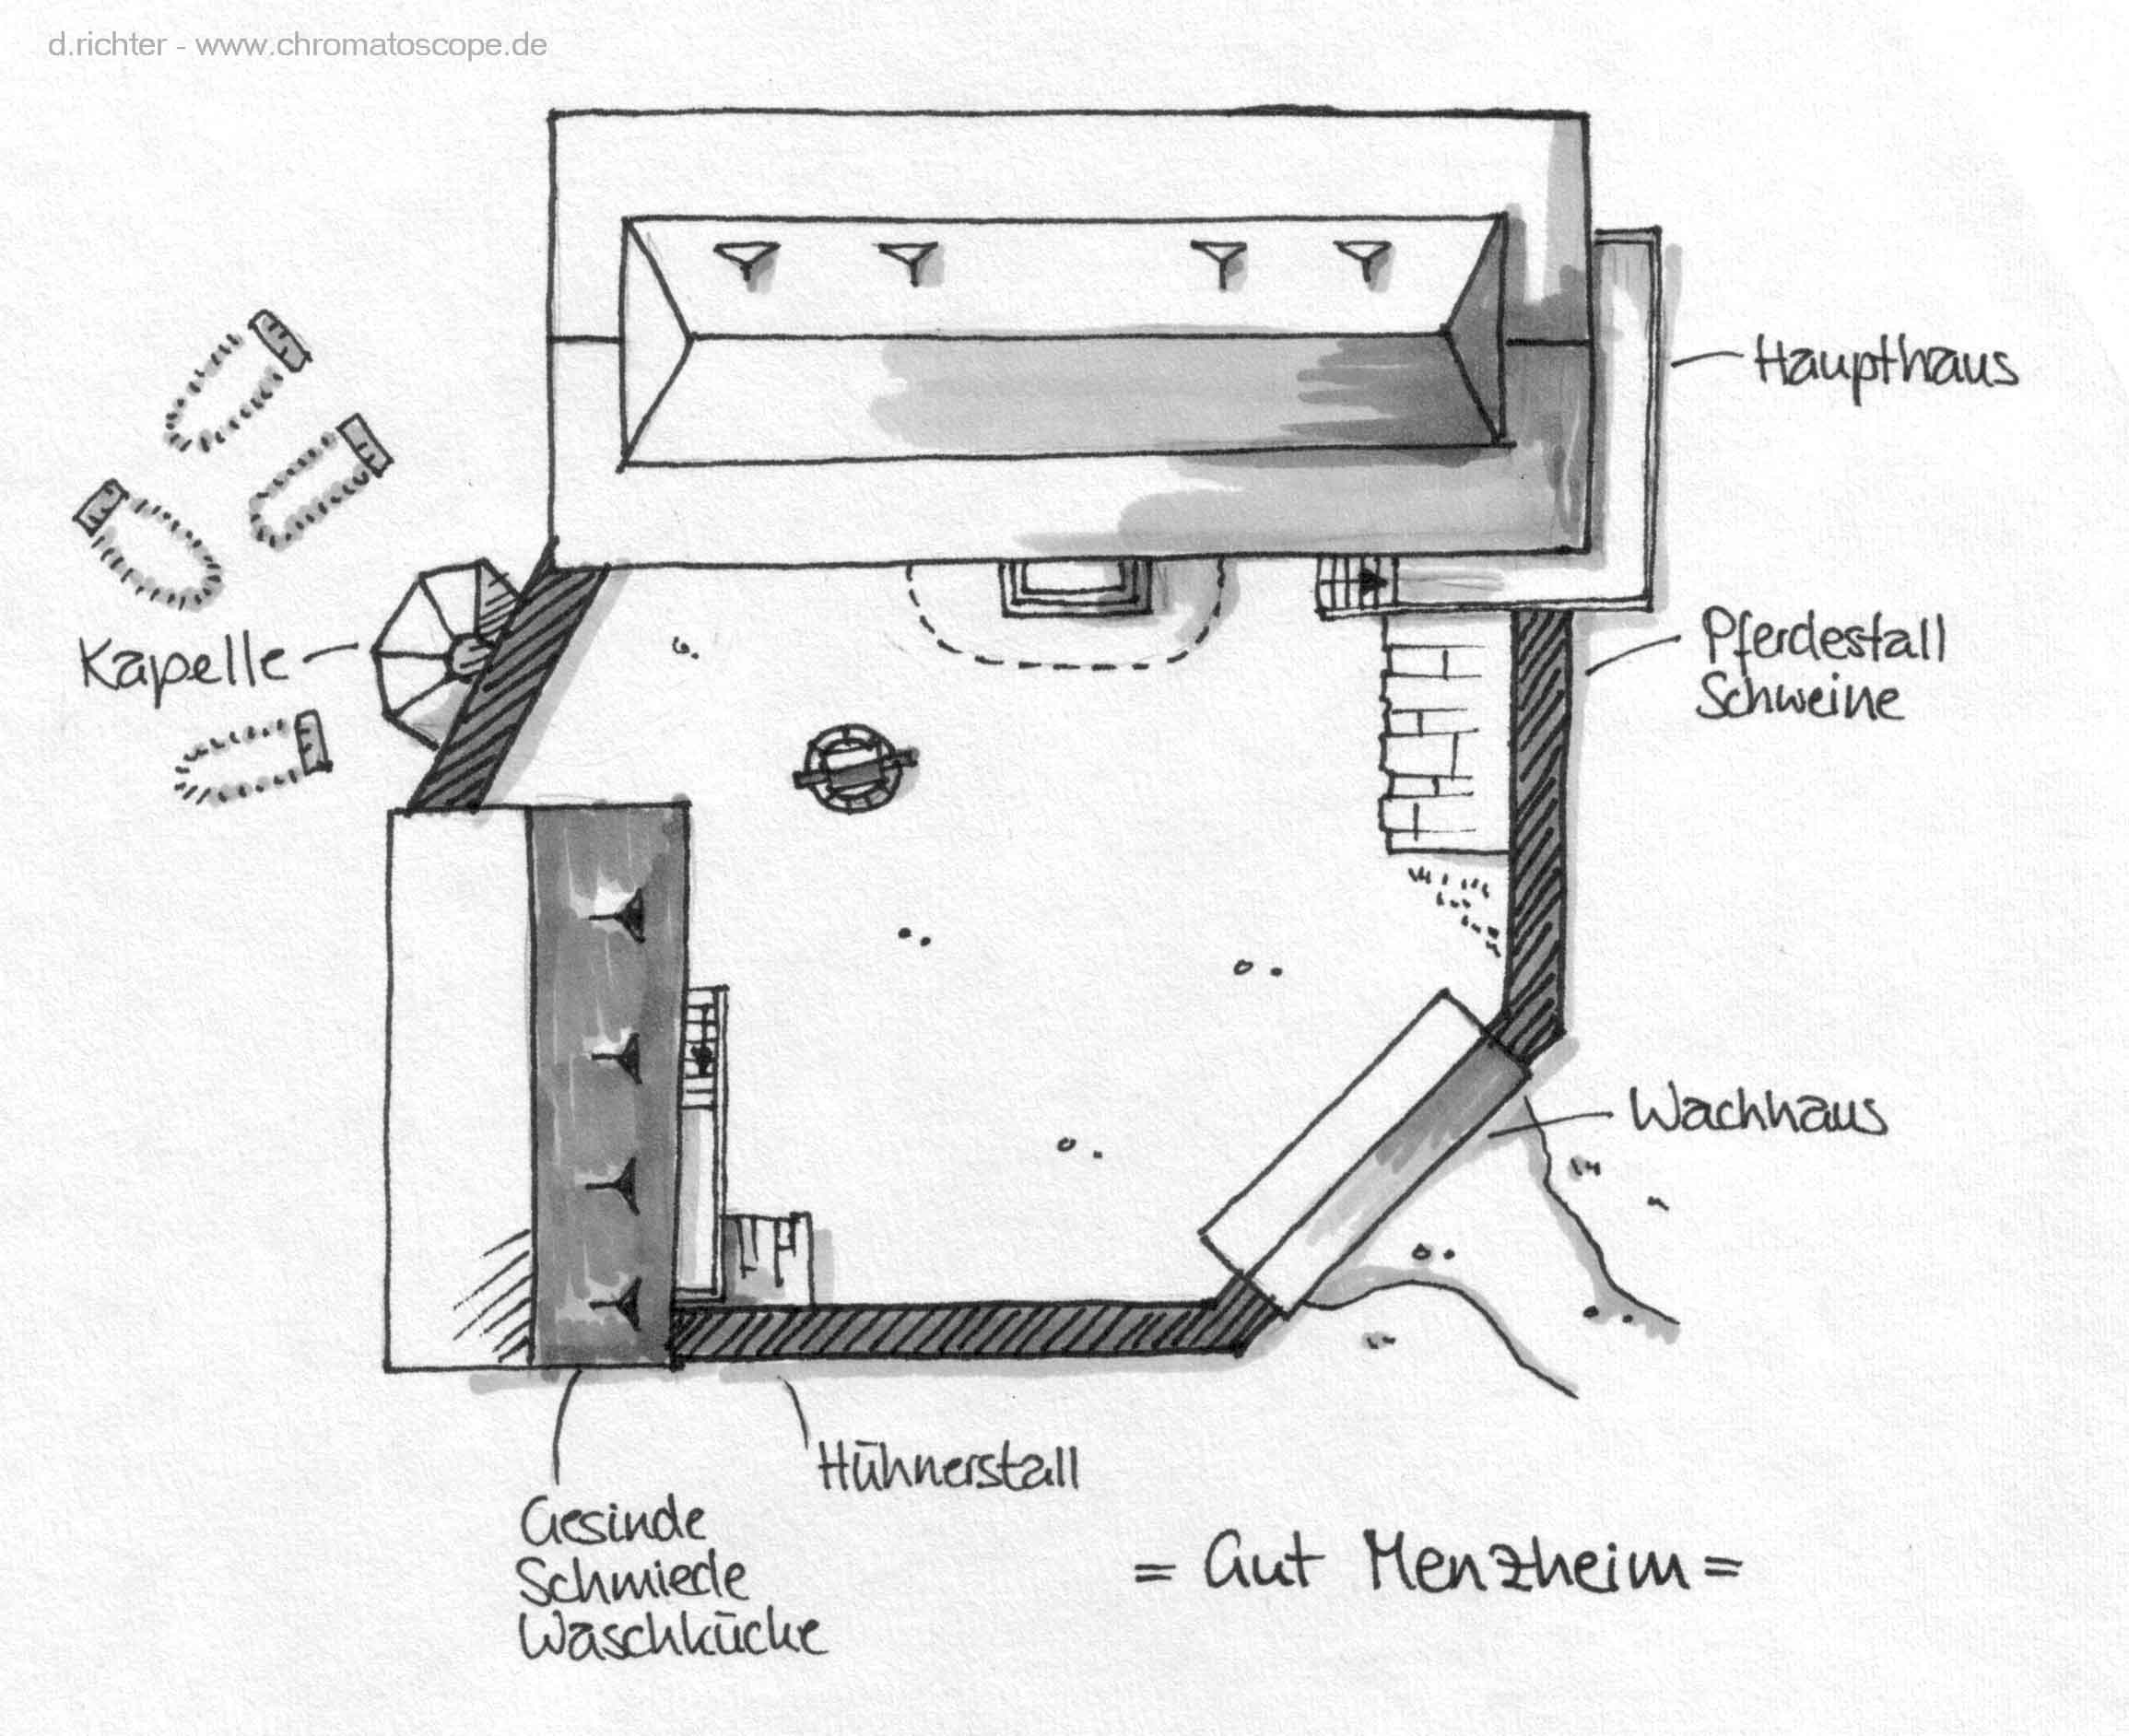 d.richter - www.chromatoscope.de
Haupthaus
Pferdestall
Schweine
Kapelle
Wachhaus
Hühnerstall
Gesinde
Schmiede
Waschkücke
= Gut Menzheim =